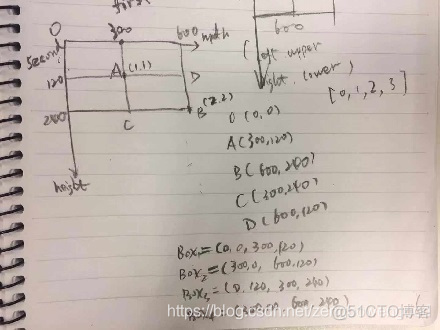 first
0 300 600 width
second
120 A (1,1) D
240 B (2,2)
C
height
600
(left, upper
right, lower)
[0, 1, 2, 3]
O (0,0)
A(300,120)
B(600,240)
C(300,240)
D(600,120)
Box1=(0,0,300,120)
Box2=(300,0,600,120)
Box3=(0,120,300,240)
600, 240)
https://blog.csdn.net/zer @51CTO博客